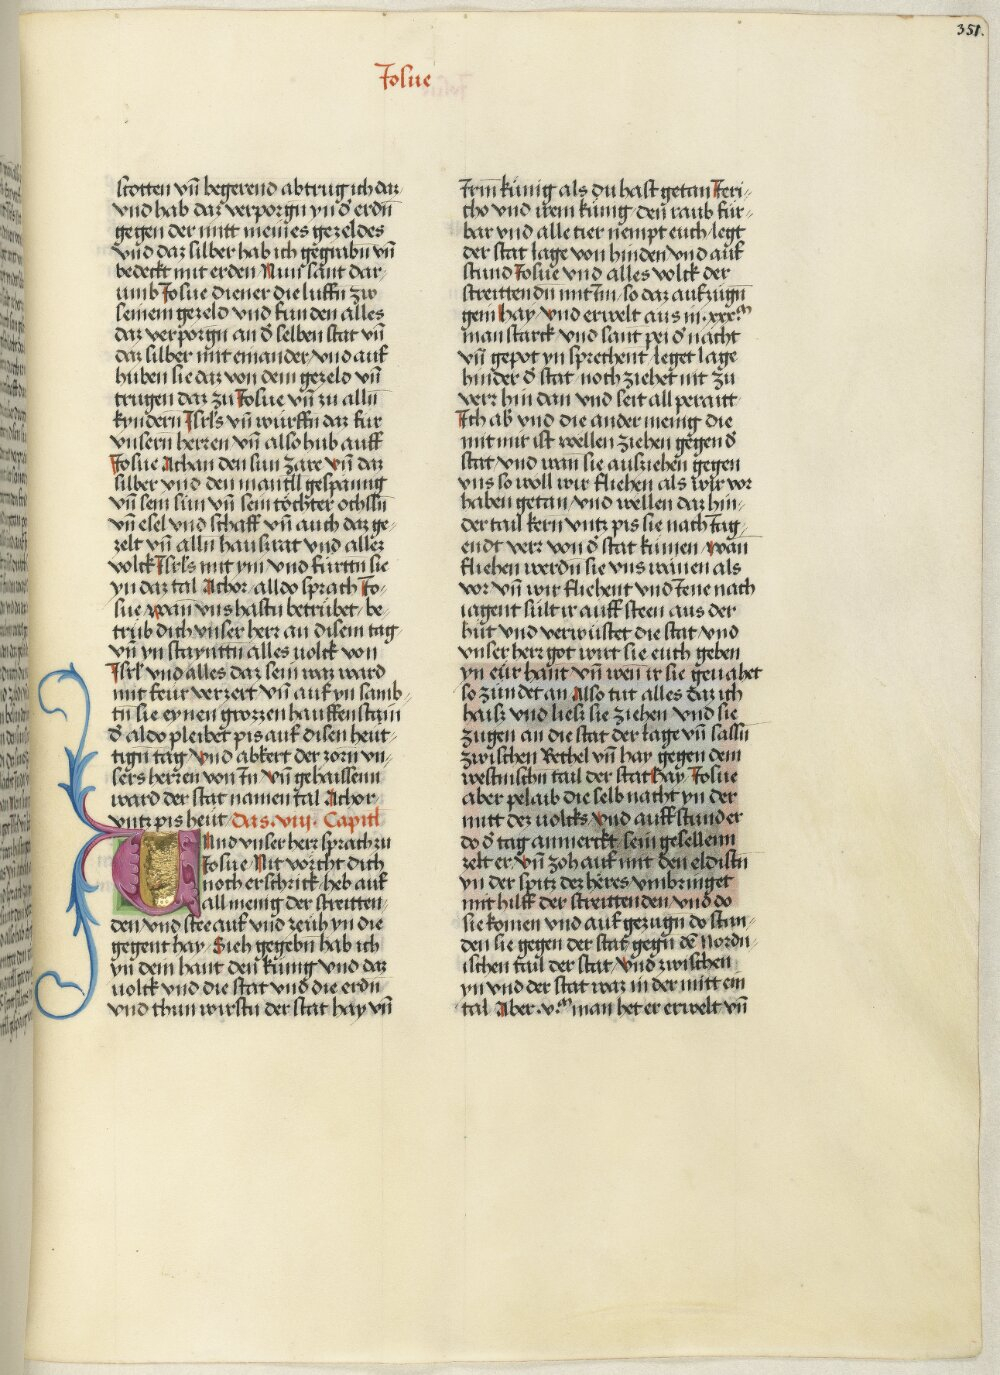 351.
Josue
scotten vn̄ begerend abtrug ich daz
vnd hab daz verporgn yn d̕ erdn̄
gegen der mitt meines gezeldes
vnd daz silber hab ich gegrabn vn̄
bedeckt mit erden Nun sant dar-
umb Josue diener die luffn̄ zw
seinem gezeld vnd funden alles
daz verporgn an d̕ selben stat vn̄
daz silber mit einander vnd auf
huben sie daz von dem gezeld vn̄
trugen daz zu Josue vn̄ zu alln̄
kyndern Isrl̕s vn̄ wurffn̄ daz für
vnsern herren vn̄ also hub auff
Josue Achan den sun zare vn̄ daz
silber vnd den mantll gespanng
vn̄ sein sün vn̄ sein töchter ochssn̄
vn̄ esel vnd schaff vn̄ auch daz ge-
zelt vn̄ alln̄ hausrat vnd allez
volck Isrl̕s mit ym vnd fürttn̄ sie
yn daz tal Achor alldo sprach Jo-
sue wan̄ vns hastu betrübet be-
trüb dich vnser herr an disem tag
vn̄ yn staynttn̄ alles volck von
Isrl̕ vnd alles daz sein waz ward
mit feur verzert vn̄ auf yn samb-
tn̄ sie eynen grozzen hauffen stain
d̕ aldo pleibet pis auf disen heut-
tign̄ tag vnd abkert der zorn vn-
sers herren von In vn̄ gehaissenn
ward der stat namen tal Achor
vntz pis heut Das .viii. Capitl
Und vnser herr sprach zu
Josue Nit vörcht dich
noch erschrick heb auf
all menig der streitten-
den vnd stee auf vnd zeüh yn die
gegent hay Sieh gegebn̄ hab ich
yn dem hant den küng vnd daz
volck vnd die stat vnd die erdn̄
vnd thun wirstu der stat hay vn̄
Irm künig als du hast getan Jeri-
cho vnd irem künig den̄ raub für-
bar vnd alle tier nempt euch legt
der stat lage von hinden vnd auf
stund Josue vnd alles volck der
streittendn̄ mit Im so daz aufzugn̄
gein hay vnd erwelt aus in .xxx.m
man starck vnd sant pei d̕ nacht
vn̄ gepot yn sprechent leget lage
hinder d̕ stat noch ziehet nit zu
verr hin dan vnd seit all peraitt
Ich ab̕ vnd die ander menig die
mit mir ist wellen ziehen gegen d̕
stat vnd wan̄ sie ausziehen gegen
vns so woll wir fliehen als wir vor
haben getan vnd wellen daz hin-
der tail kern vntz pis sie nachJag-
endt verr von d̕ stat kumen wan̄
fliehen werdn̄ sie vns wanen als
vor vn̄ wir fliehent vnd Iene nach
iagent sült ir auff steen aus der
hut vnd verwüstet die stat vnd
vnser herr got wirt sie euch geben
yn eur hant vn̄ wen̄ ir sie genahet
so zündet an Also tut alles daz ich
haisz vnd liesz sie ziehen vnd sie
zugen an die stat der lage vn̄ sassn̄
zwischen Bethel vn̄ hay gegen dem
westnischn̄ tail der stat hay Josue
aber pelaib die selb nacht yn der
mitt dez volcks vnd auffstund er
do d̕ tag anmerckt sein gesellenn
zelt er vn̄ zoh auf mit den eldistn̄
yn der spitz dez heres vmbringet
mit hilff der streittenden vnd do
sie komen vnd auf gezugn̄ do stun-
den sie gegen der stat gegn̄ dē Nordn̄-
ischen tail der stat vnd zwischen
yn vnd der stat waz in der mitt ein
tal Aber .v.m man het er erwelt vn̄